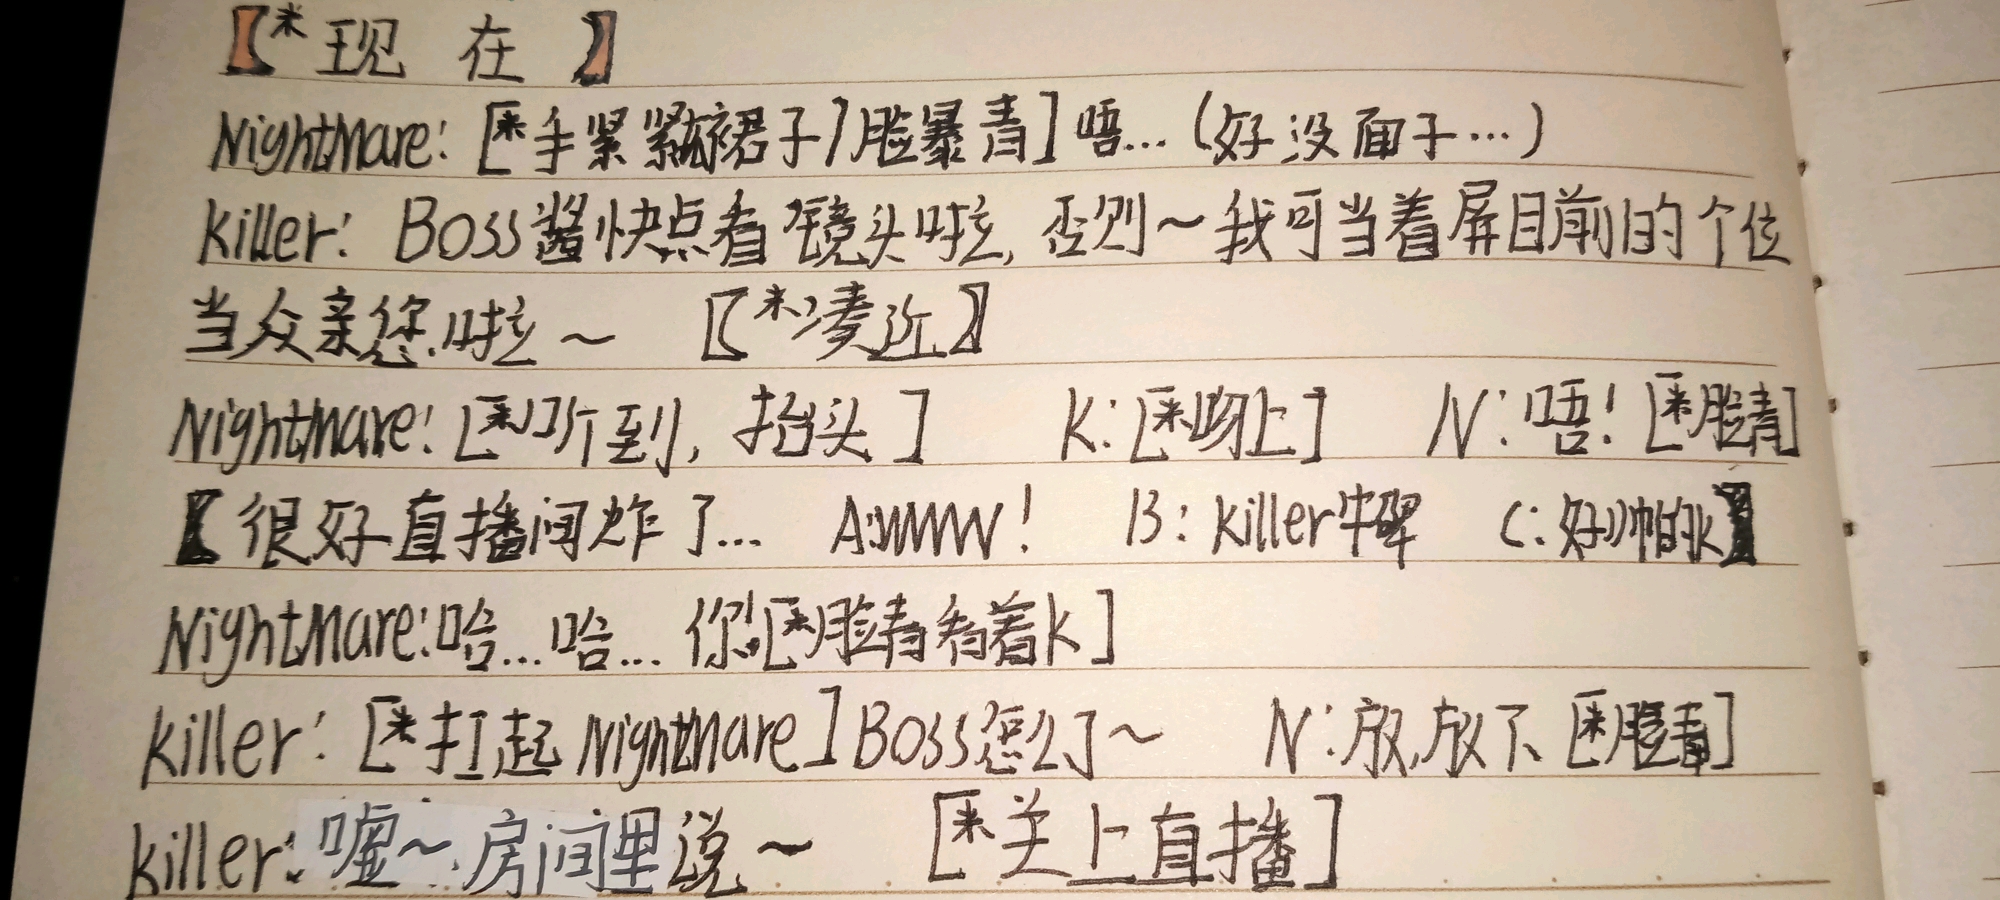 【*现 在 】
NightMare: [*手紧紧抓裙子/脸暴青]唔…(好没面子…)
killer: Boss酱快点看镜头啦, 否则～我可当着屏目前的个位
当众亲您啦～ 【*凑近】
NightMare: [*听到, 抬头 ] K: [*吻上] N: 唔! [*脸青]
【很好直播间炸了… A:WWWW! B: killer牛 C: 好】
NightMare:哈…哈… 你[*脸青看着K]
killer: [*扛起 NightMare] Boss怎么了～ N: 放,放下 [*脸青]
killer: 嘘～房间里说～ [*关上直播]